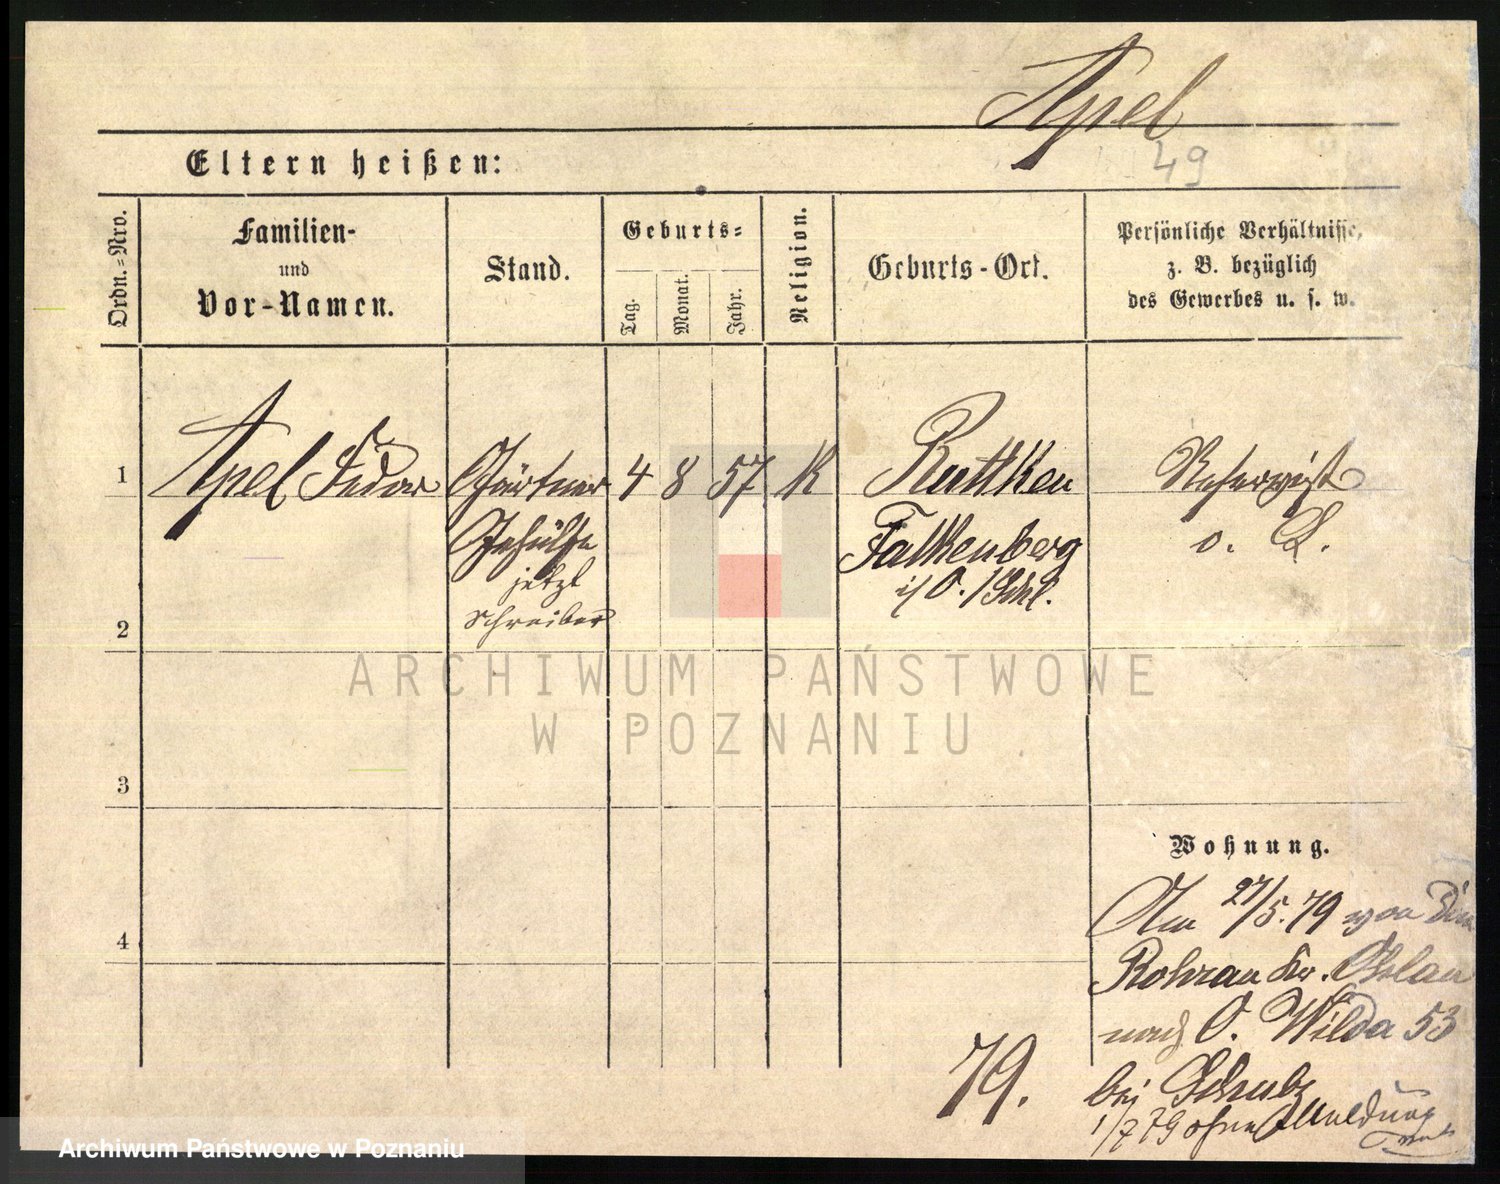 Apel
49
Eltern heißen:
Ordn.=Nro.
Familien-
und
Vor-Namen.
Stand.
Geburts=
Tag.
Monat.
Jahr.
Religion.
Geburts-Ort.
Persönliche Verhältnisse,
z. B. bezüglich
des Gewerbes u. s. w.
1
Apel Fedor
Gärtner
Gehülfe
jetzt
Schreiber
4 8 57 K
Ruttken
Falkenberg
i/ O./Schl.
Reservist
o. L.
2
ARCHIWUM PAŃSTWOWE
W POZNANIU
3
Wohnung.
4
Am 27/5. 79 von
Rohrau Kr. Ohlau
nach O. Wilda 53
bei Schulz
1/7 79 ohne Meldung
79.
Archiwum Państwowe w Poznaniu